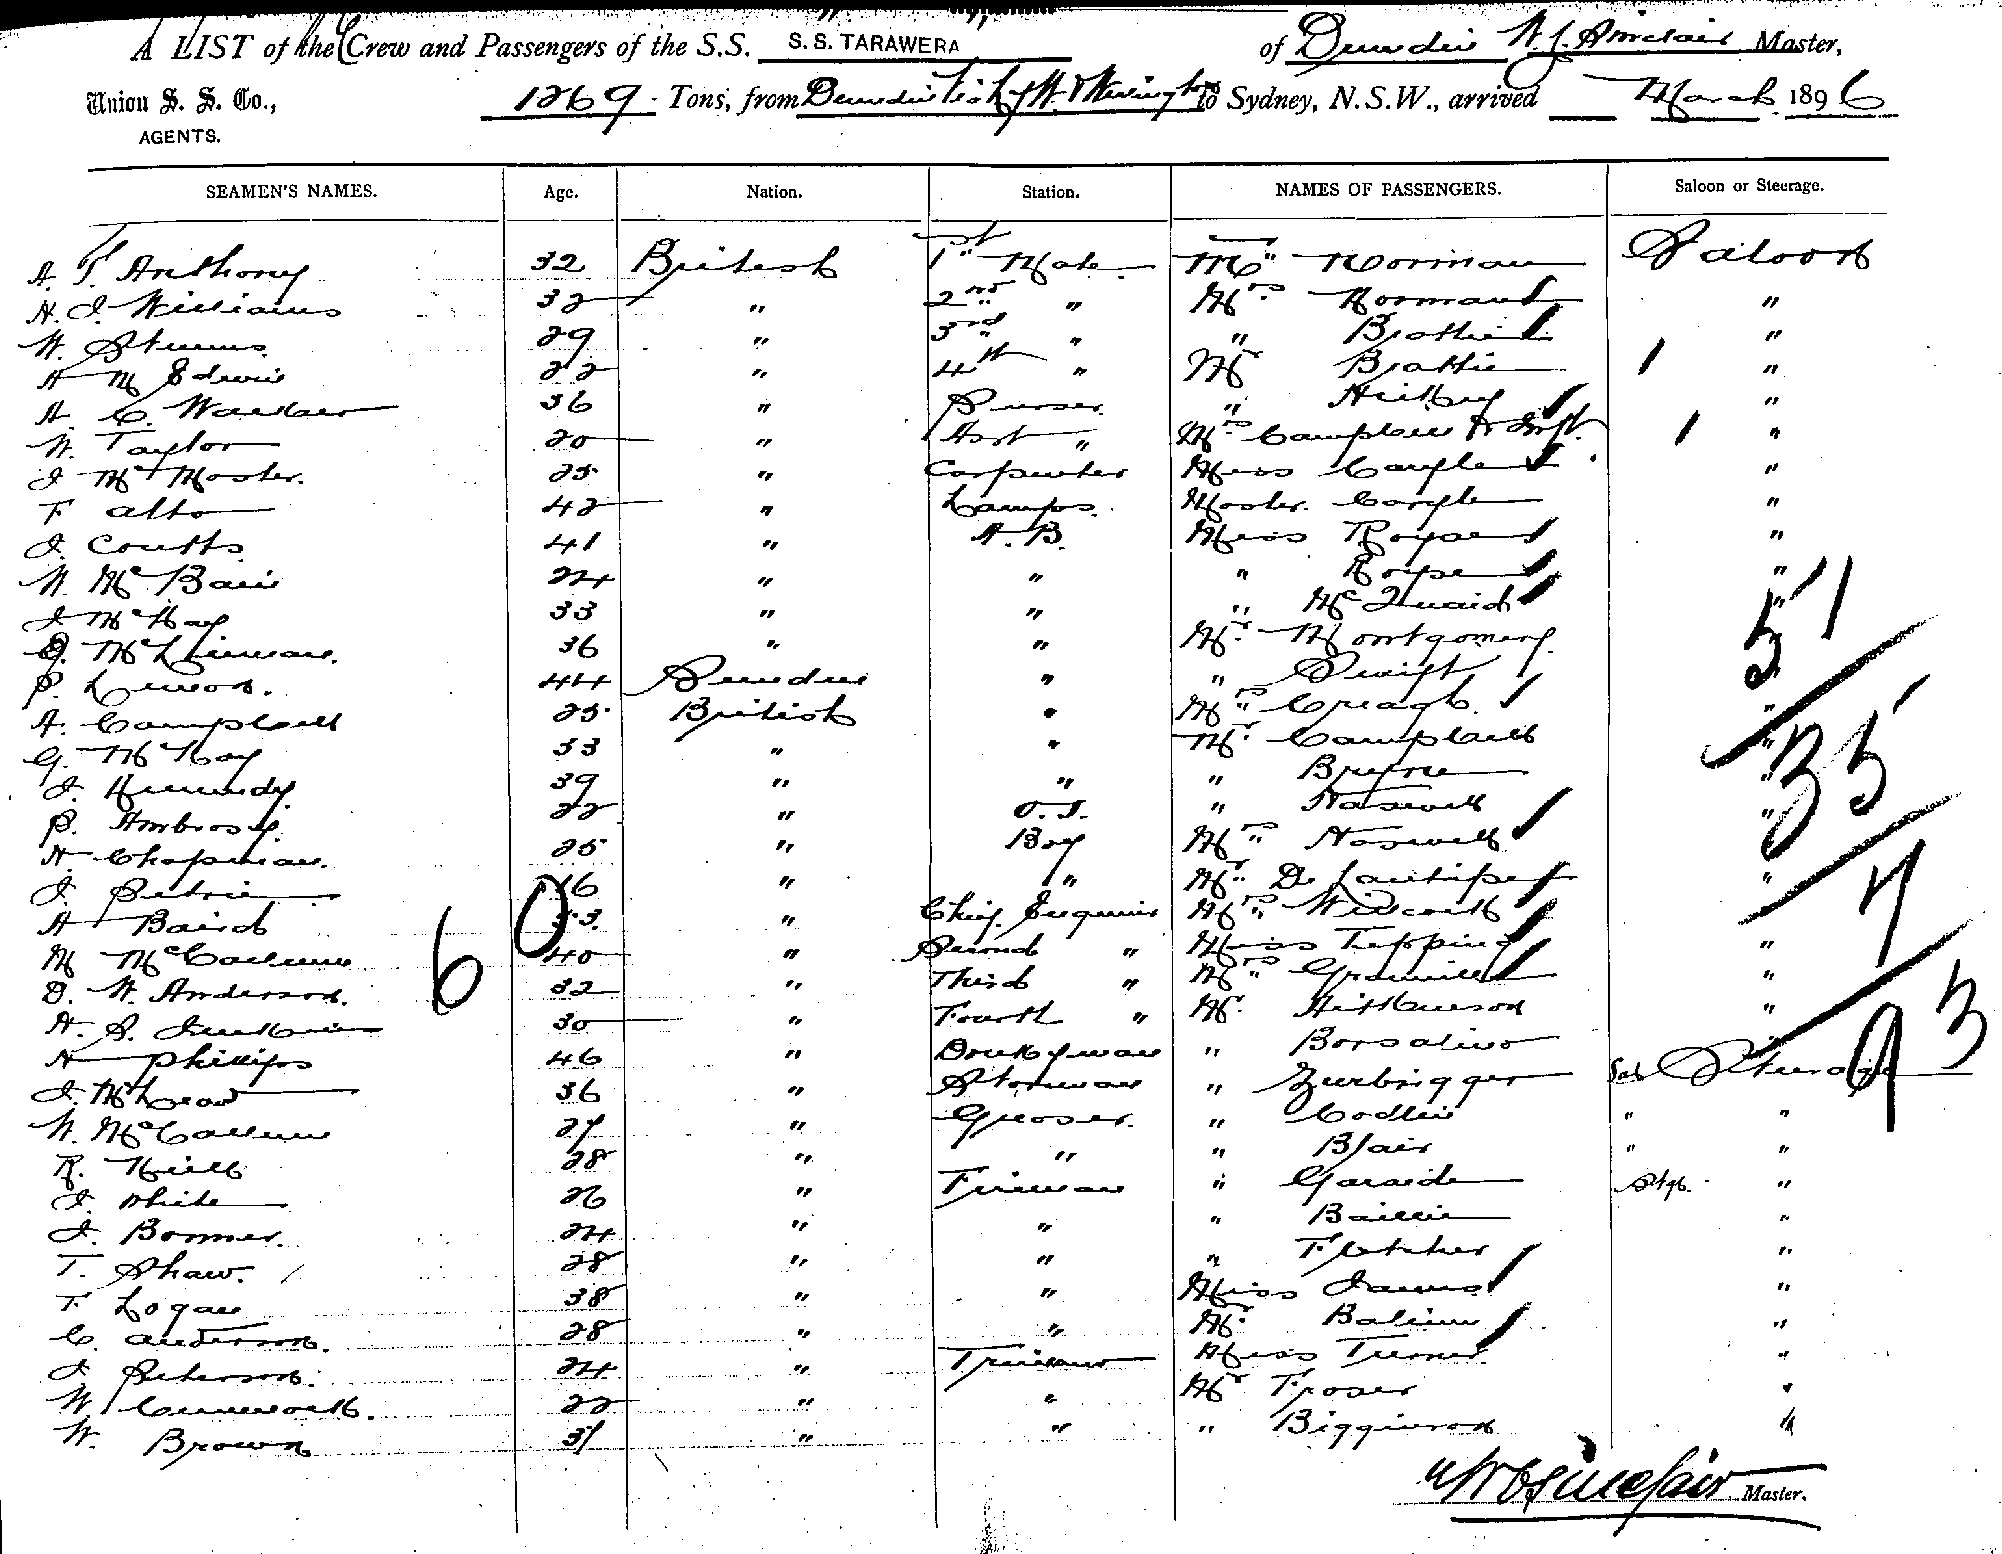 A LIST of the Crew and Passengers of the S.S. S.S. TARAWERA of Dunedin W. J. Sinclair Master,
Union S. S. Co., AGENTS. 1269 Tons, from Dunedin & Wellington to Sydney, N.S.W., arrived March 1896
SEAMEN'S NAMES. Age. Nation. Station. NAMES OF PASSENGERS. Saloon or Steerage.
A. T. Anthony 32 British 1st Mate Mr Norman Saloon
H. J. Williams 32 " 2nd " Mrs Norman "
W. 29 " 3rd " " Beattie "
A M Edwin 22 " 4th " Mr Beattie 1 "
A. C. 36 " Purser " Hickey "
W. Taylor 20 " Asst " Mrs Campbell & Inft. 1 "
J McMaster. 25 " Carpenter Miss Cargle "
F alto 42 " Lamps. Master Cargle "
J. Coutts 41 " A. B. Miss Royse "
W. McBain 24 " " " Royse "
J McKay 33 " " " McQuaid "
McLennan. 36 " " Mr Montgomery "
P. 44 Sweden " " Swift "
A. Campbell 25 British " Mrs Creagh "
G. McKay 33 " " Mr Campbell "
J. Kennedy 39 " " " Byrne "
P. Ambrosy. 22 " O.S. " Naswell "
H Chapman. 25 " Boy Mrs Naswell "
J. Petrie 16 " " Mr De "
A Baird 53 " Chief Engineer Mrs "
M McCallum 40 " Second " Miss "
D. W. Anderson. 32 " Third " Mrs Granville "
A. P. Junkin 30 " Fourth " Mr. "
H Phillips 46 " Donkeyman " Borsalino
J. McLean 36 " Storeman " Zurbrigger Sal Steerage
W. McCallum 27 " Greaser. " Codlin " "
R. Neill 28 " " " Blair " "
J. White 26 " Fireman " Garside Stge. "
J. Bonner. 24 " " " Baillie "
T. Shaw. 28 " " " Fletcher "
F Logan 38 " " Miss James "
C. Anderson. 28 " " Mr. "
J Peterson. 24 " Trimmer Miss Turner. "
W 22 " " Mr Fraser "
W. Brown 31 " " " Bigginson "
60
51
35
7
93
W J Sinclair Master.